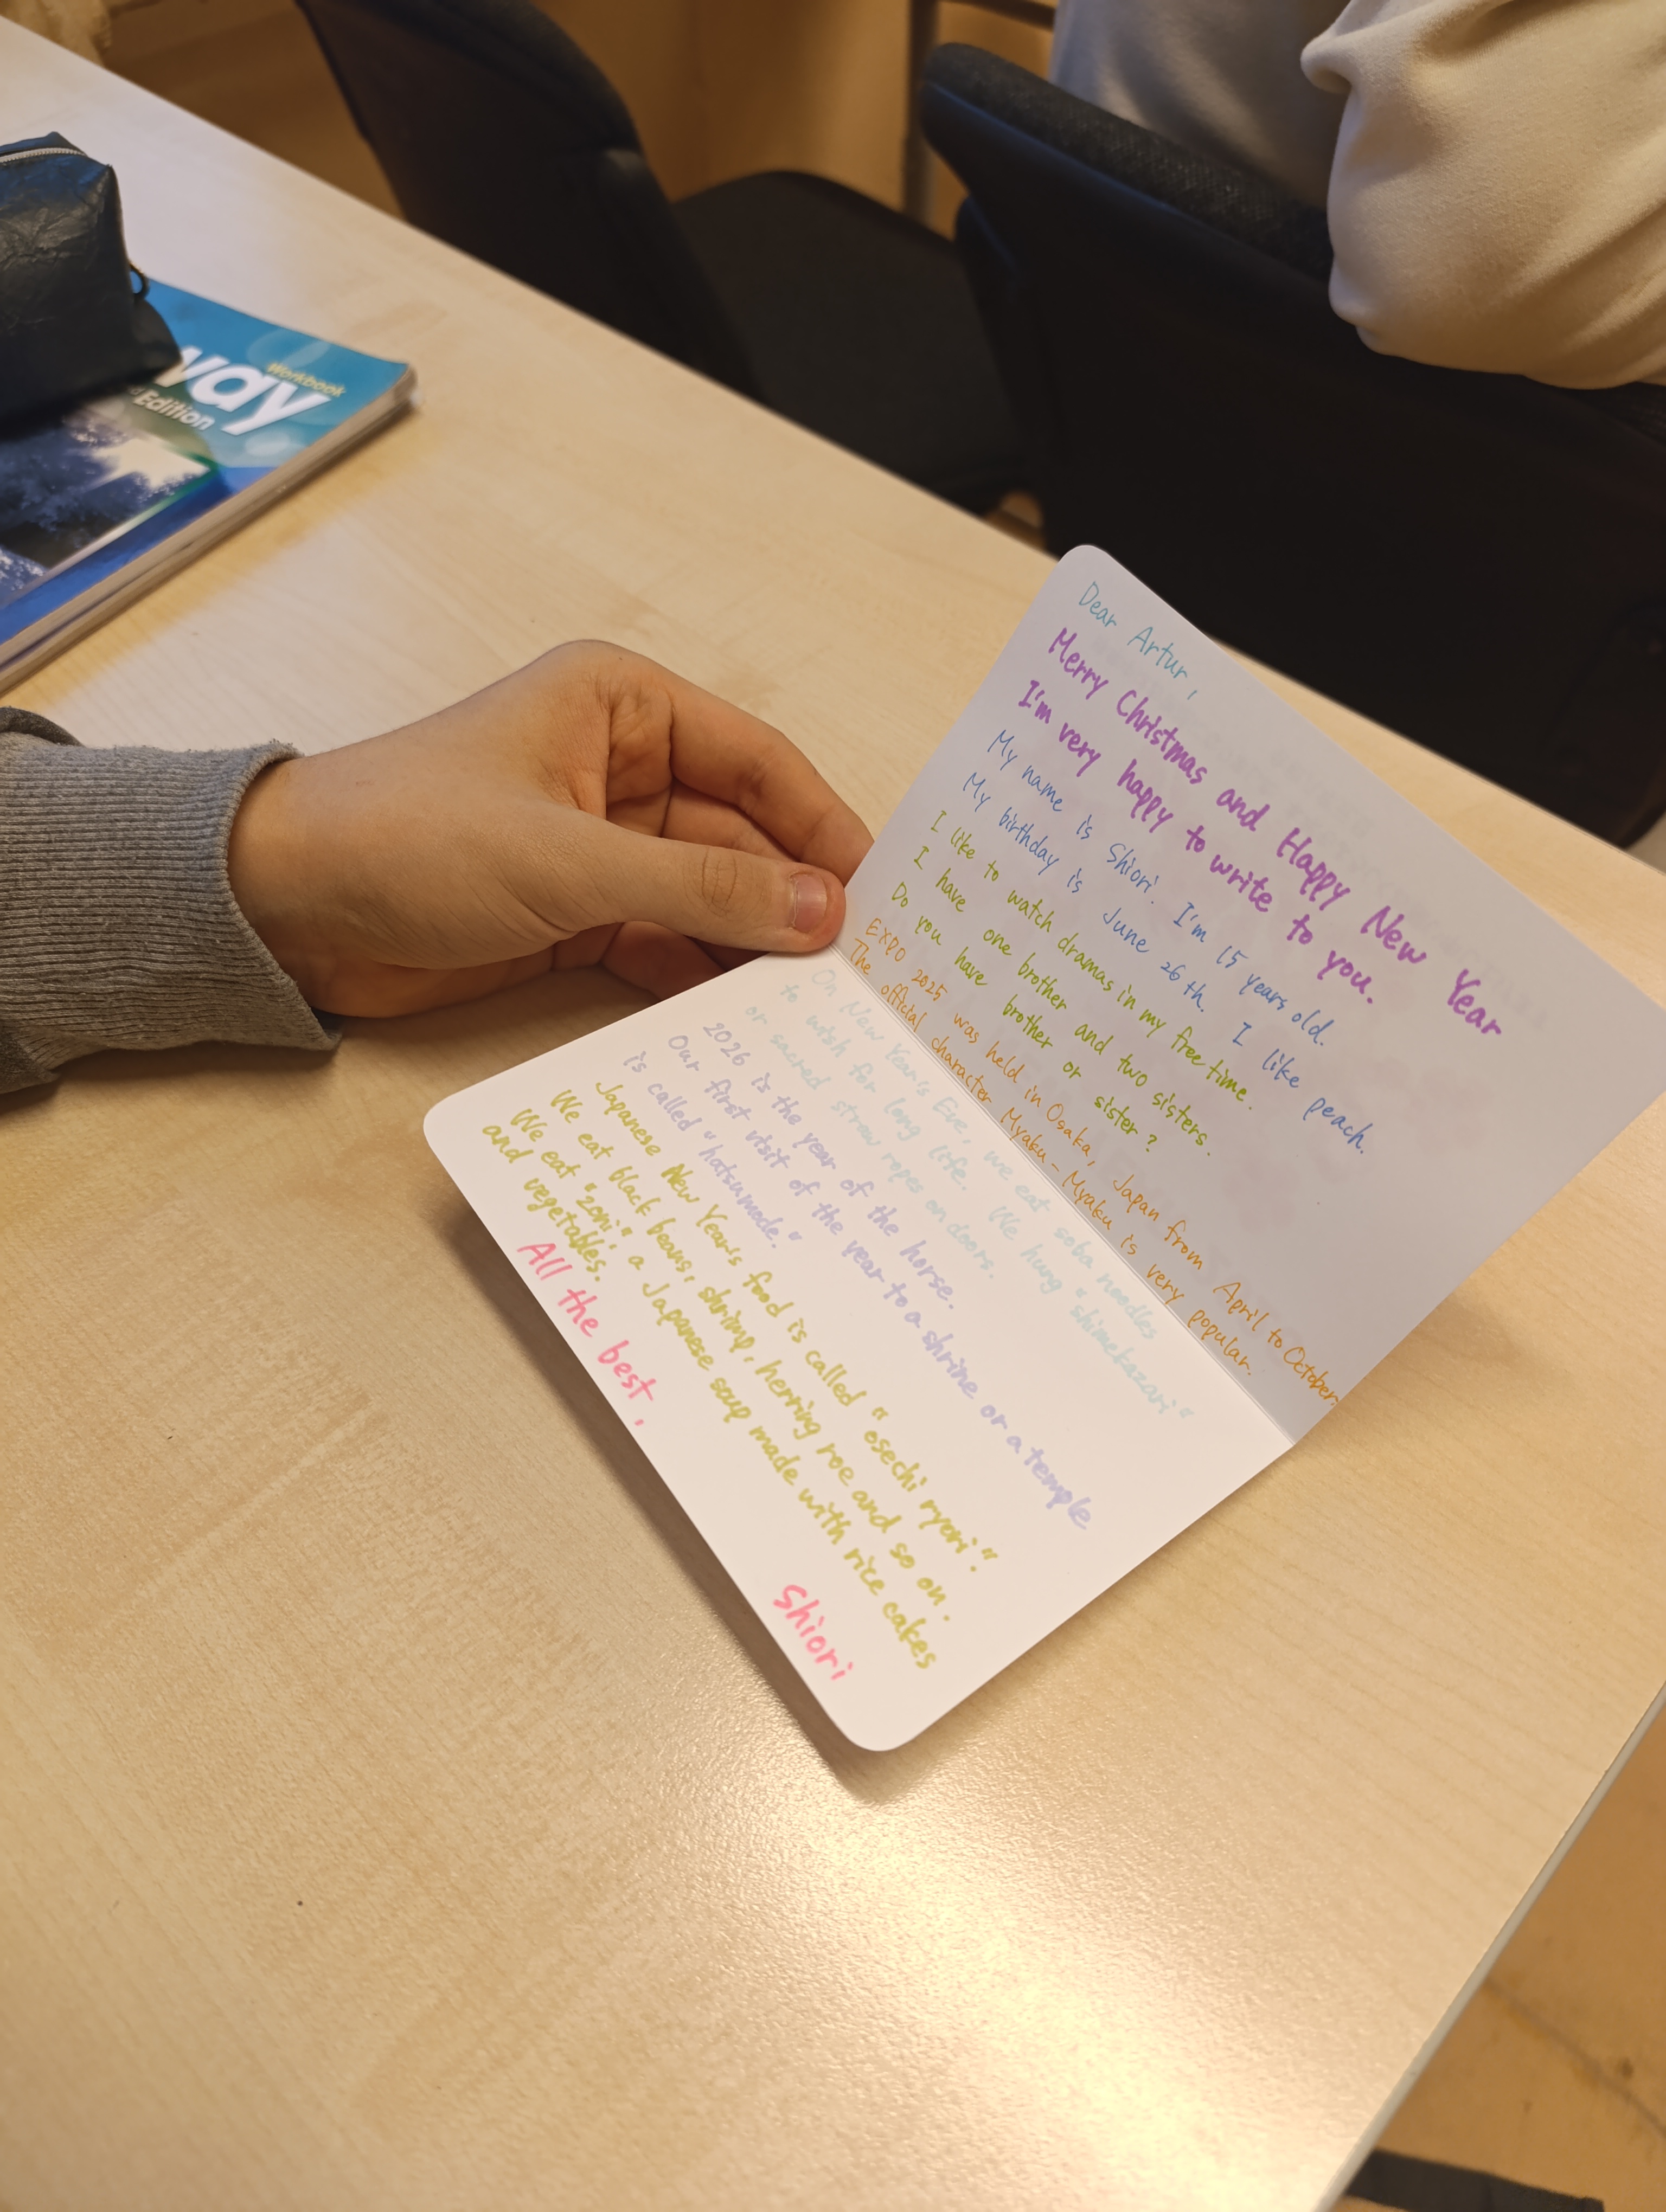 way
Workbook
Edition
Dear Artur,
Merry Christmas and Happy New Year
I'm very happy to write to you.
My name is Shiori. I'm 15 years old.
My birthday is June 26th. I like peach.
I like to watch dramas in my free time.
I have one brother and two sisters.
Do you have brother or sister?
EXPO 2025 was held in Osaka, Japan from April to October.
The official character Myaku-Myaku is very popular.
On New Year's Eve, we eat soba noodles
to wish for long life. We hung "shimekazari"
or sacred straw ropes on doors.
2026 is the year of the horse.
Our first visit of the year to a shrine or a temple
is called "hatsumode."
Japanese New Year's food is called "osechi ryori".
We eat black beans, shrimp, herring roe and so on.
We eat "zoni" a Japanese soup made with rice cakes
and vegetables.
All the best,
Shiori